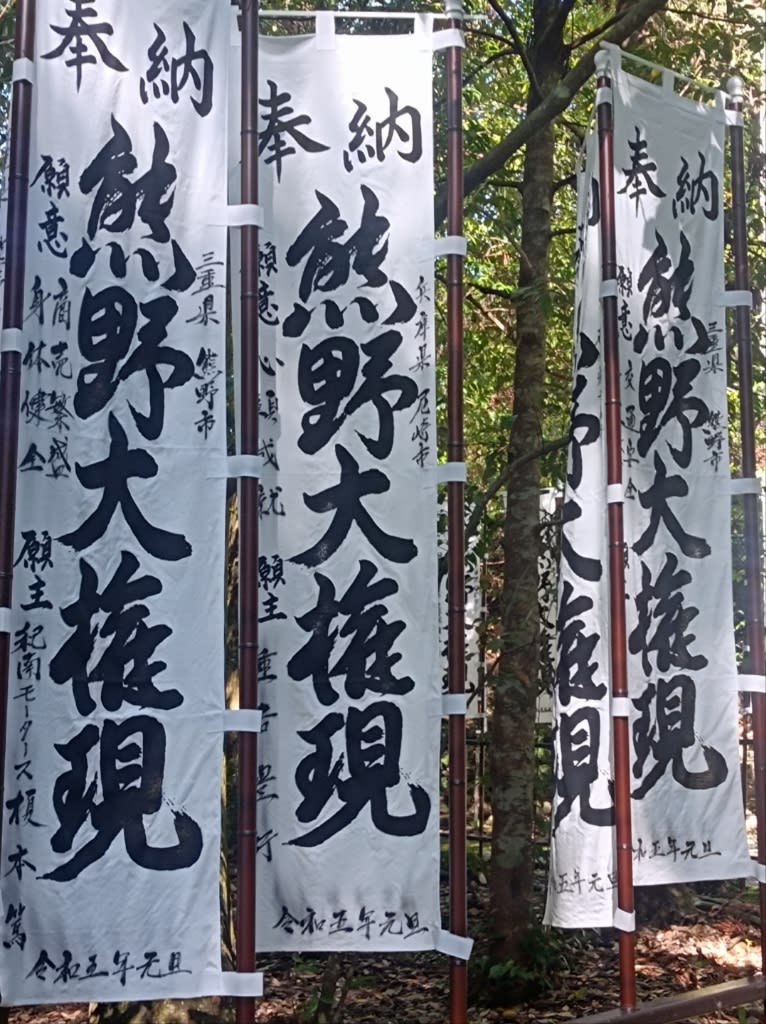 奉納
熊野大権現
三重県 熊野市
願意 商売繁盛
身体健全
願主 紀南モータース 榎本 篤
令和五年元旦
奉納
熊野大権現
兵庫県 尼崎市
願意 心願成就
願主 重吉豊行
令和五年元旦
野大権現
五年元旦
奉納
熊野大権現
三重県 熊野市
願意 交通安全
令和五年元旦